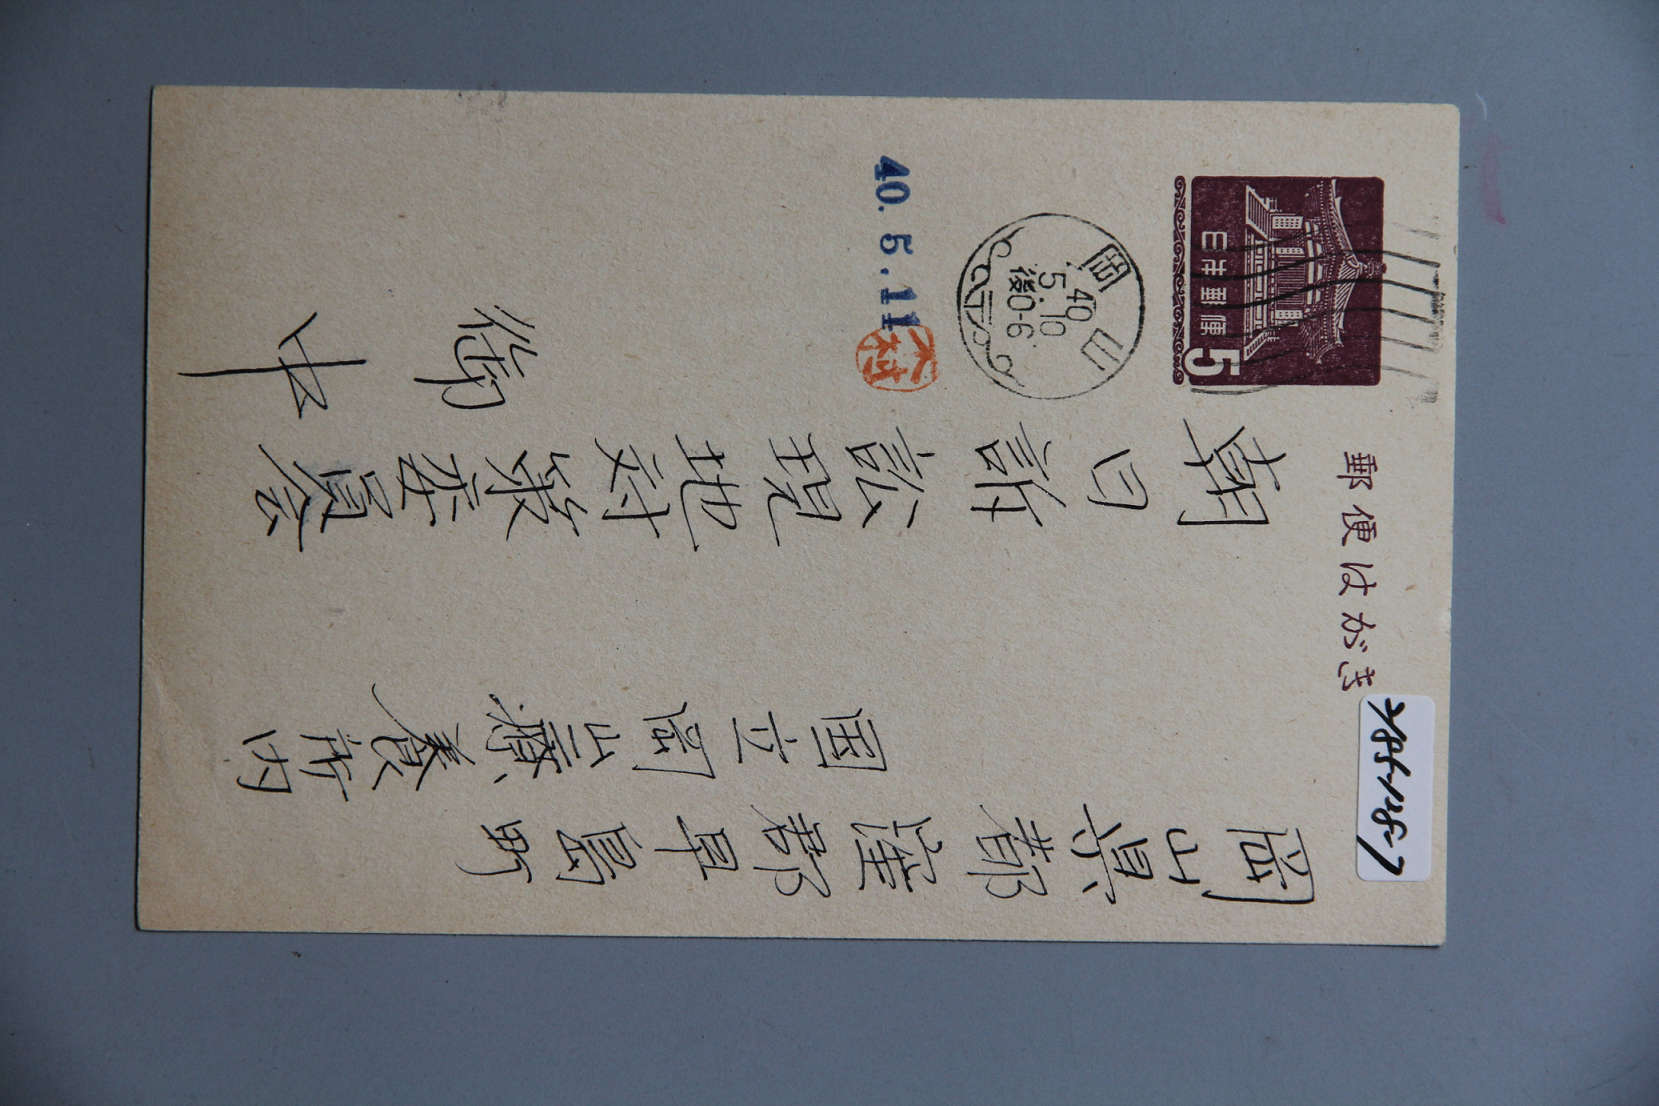 郵便はがき
日本郵便
5
岡山
40
5.10
後0-6
40.5.11
木村
岡山県都窪郡早島町
国立岡山療養所内
朝日訴訟現地対策委員会
御中